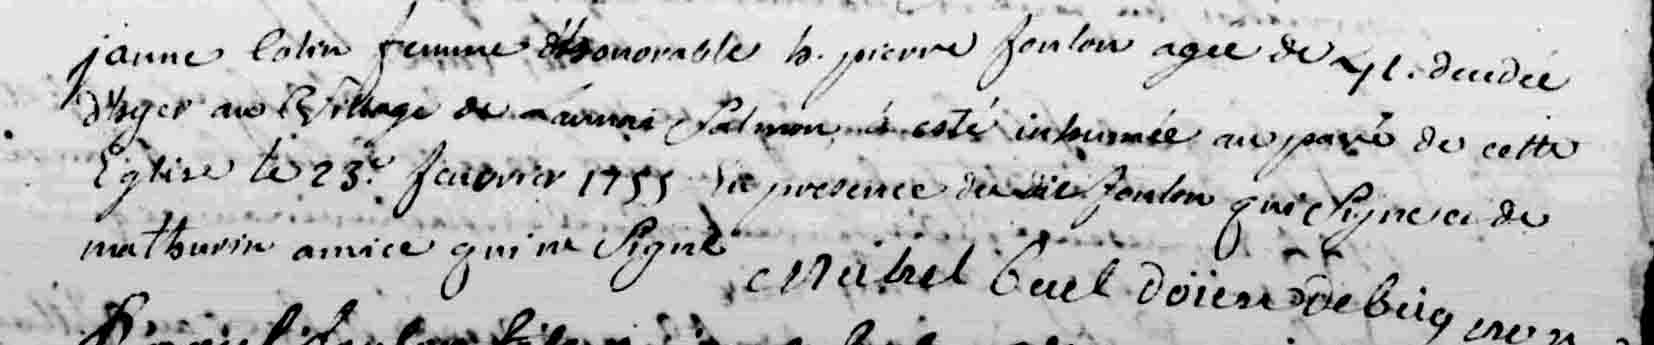 janne Colin femme d'honorable h. pierre foulon agee de 41. decedée
d'hyer au Village de Salmon á esté inhumée au pavé de cette
Eglise le 23e. feuvrier 1755 presence du dit foulon qui Signe et de
mathurin amice qui ne Signe
Michel Cuel doien de